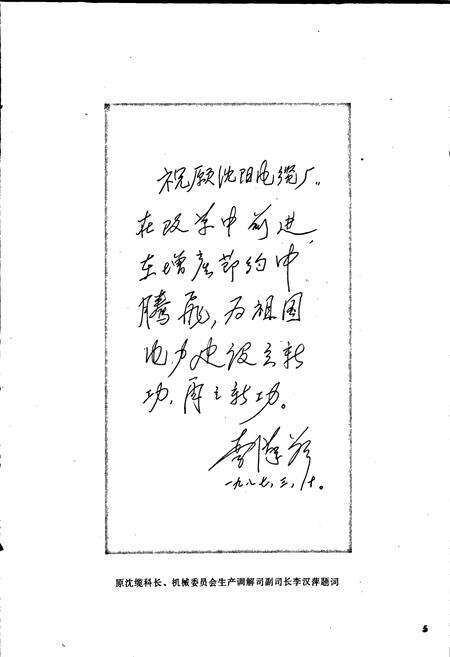 祝愿沈阳电缆厂。
在改革中前进,
在增产节约中
腾飞,为祖国
电力建设立新
功,再立新功。
一九八七,三,十。
原沈缆科长、机械委员会生产调解司副司长李汉萍题词
5